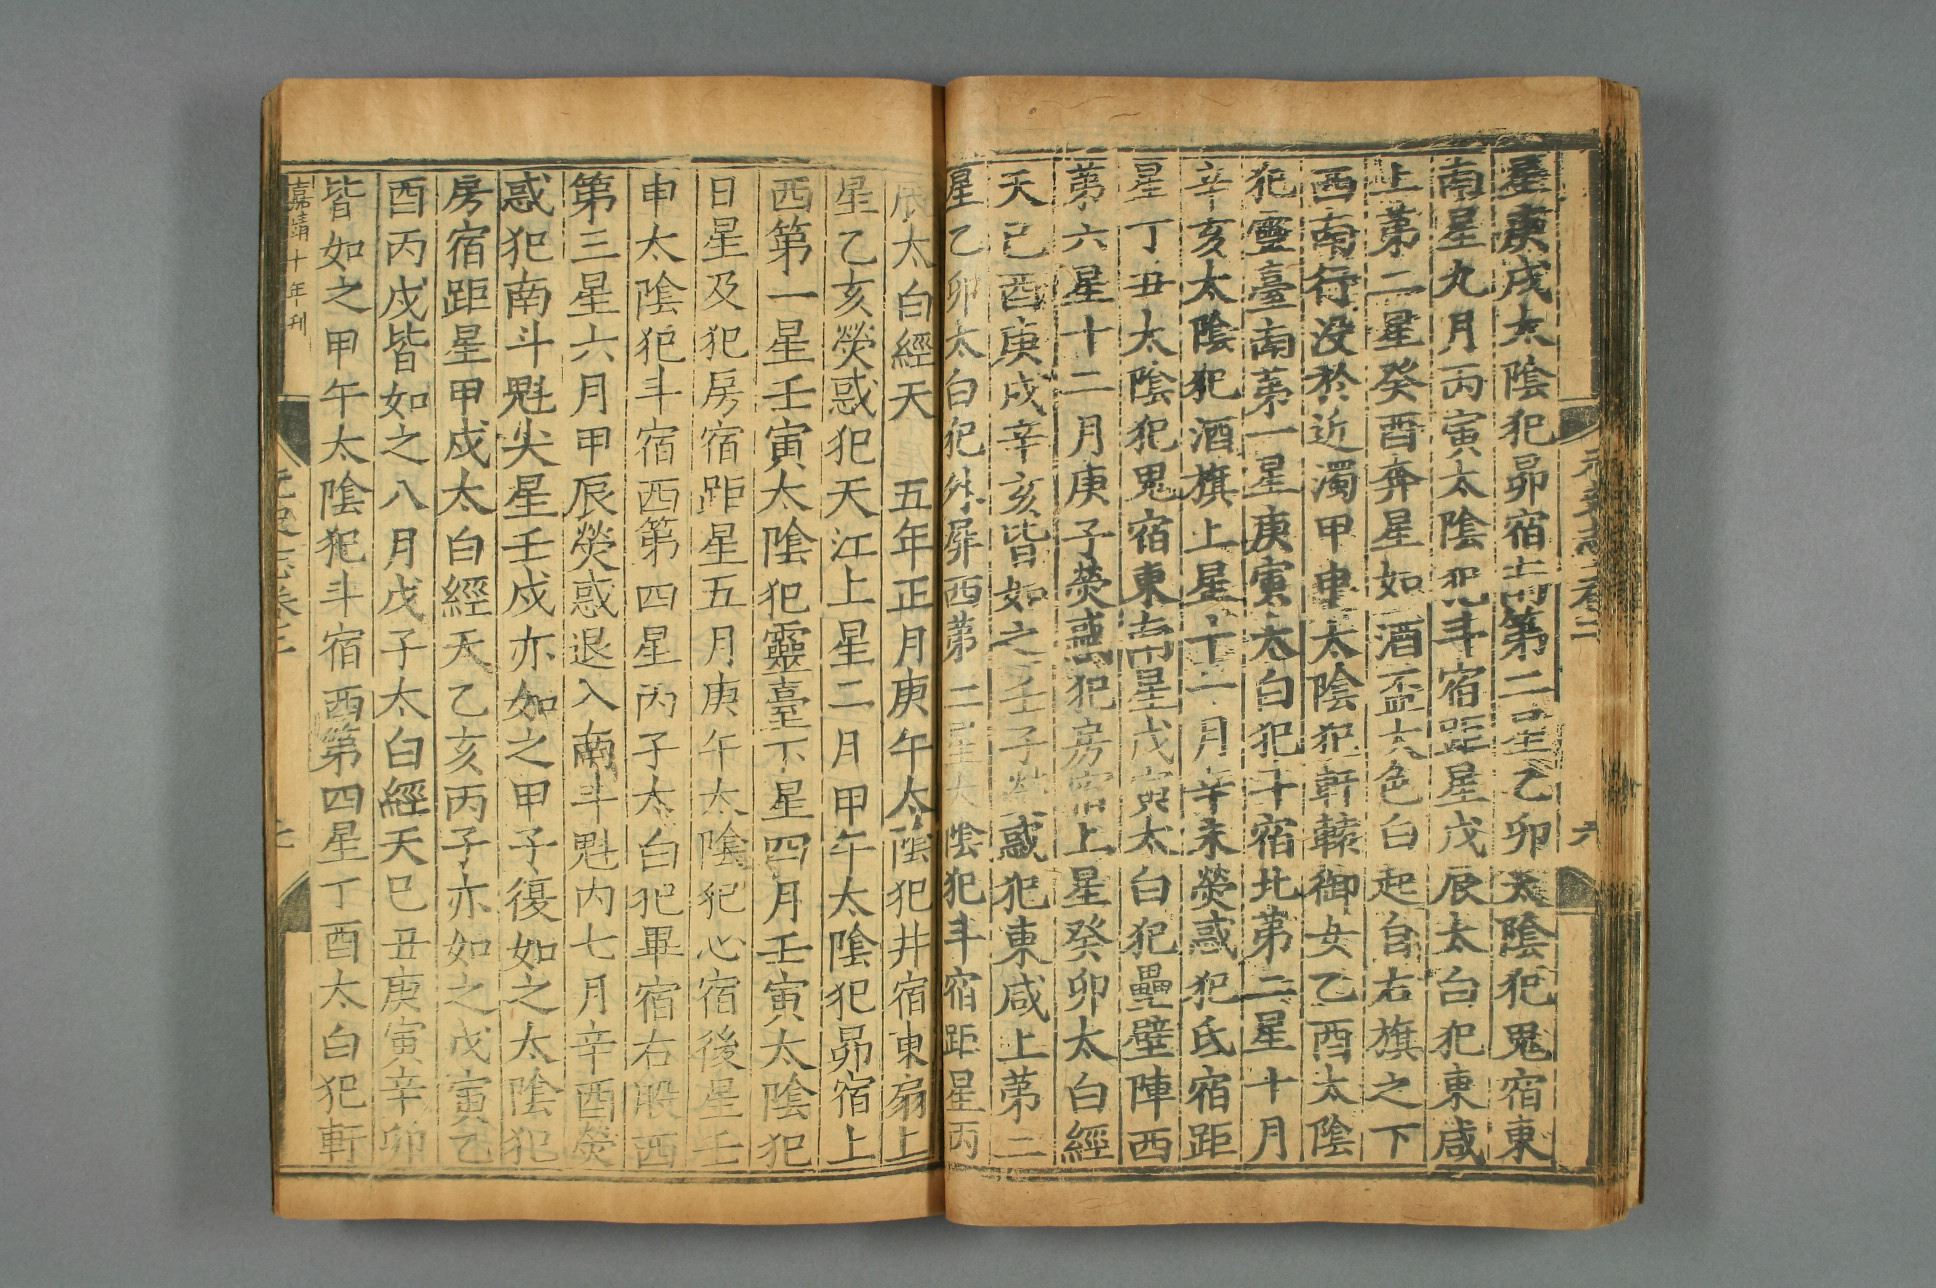 元史志卷二
九
星庚戌太陰犯昴宿南第二星乙卯太陰犯鬼宿東
南星九月丙寅太陰犯斗宿距星戊辰太白犯東咸
上第二星癸酉奔星如酒盃大色白起自右旗之下
西南行没於近濁甲申太陰犯軒轅御女乙酉太陰
犯靈臺南第一星庚寅太白犯斗宿北第二星十月
辛亥太陰犯酒旗上星十一月辛未熒惑犯氐宿距
星丁丑太陰犯鬼宿東南星戊寅太白犯壘壁陣西
第六星十二月庚子熒惑犯房宿上星癸卯太白經
天己酉庚戌辛亥皆如之壬子熒惑犯東咸上第二
星乙卯太白犯外屏西第二星太陰犯斗宿距星丙
辰太白經天 五年正月庚午太陰犯井宿東扇上
星乙亥熒惑犯天江上星二月甲午太陰犯昴宿上
西第一星壬寅太陰犯靈臺下星四月壬寅太陰犯
日星及犯房宿距星五月庚午太陰犯心宿後星壬
申太陰犯斗宿西第四星丙子太白犯畢宿右股西
第三星六月甲辰熒惑退入南斗魁内七月辛酉熒
惑犯南斗魁尖星壬戌亦如之甲子復如之太陰犯
房宿距星甲戌太白經天乙亥丙子亦如之戊寅乙
酉丙戌皆如之八月戊子太白經天己丑庚寅辛卯
皆如之甲午太陰犯斗宿西第四星丁酉太白犯軒
嘉靖十年刊
元史志卷二